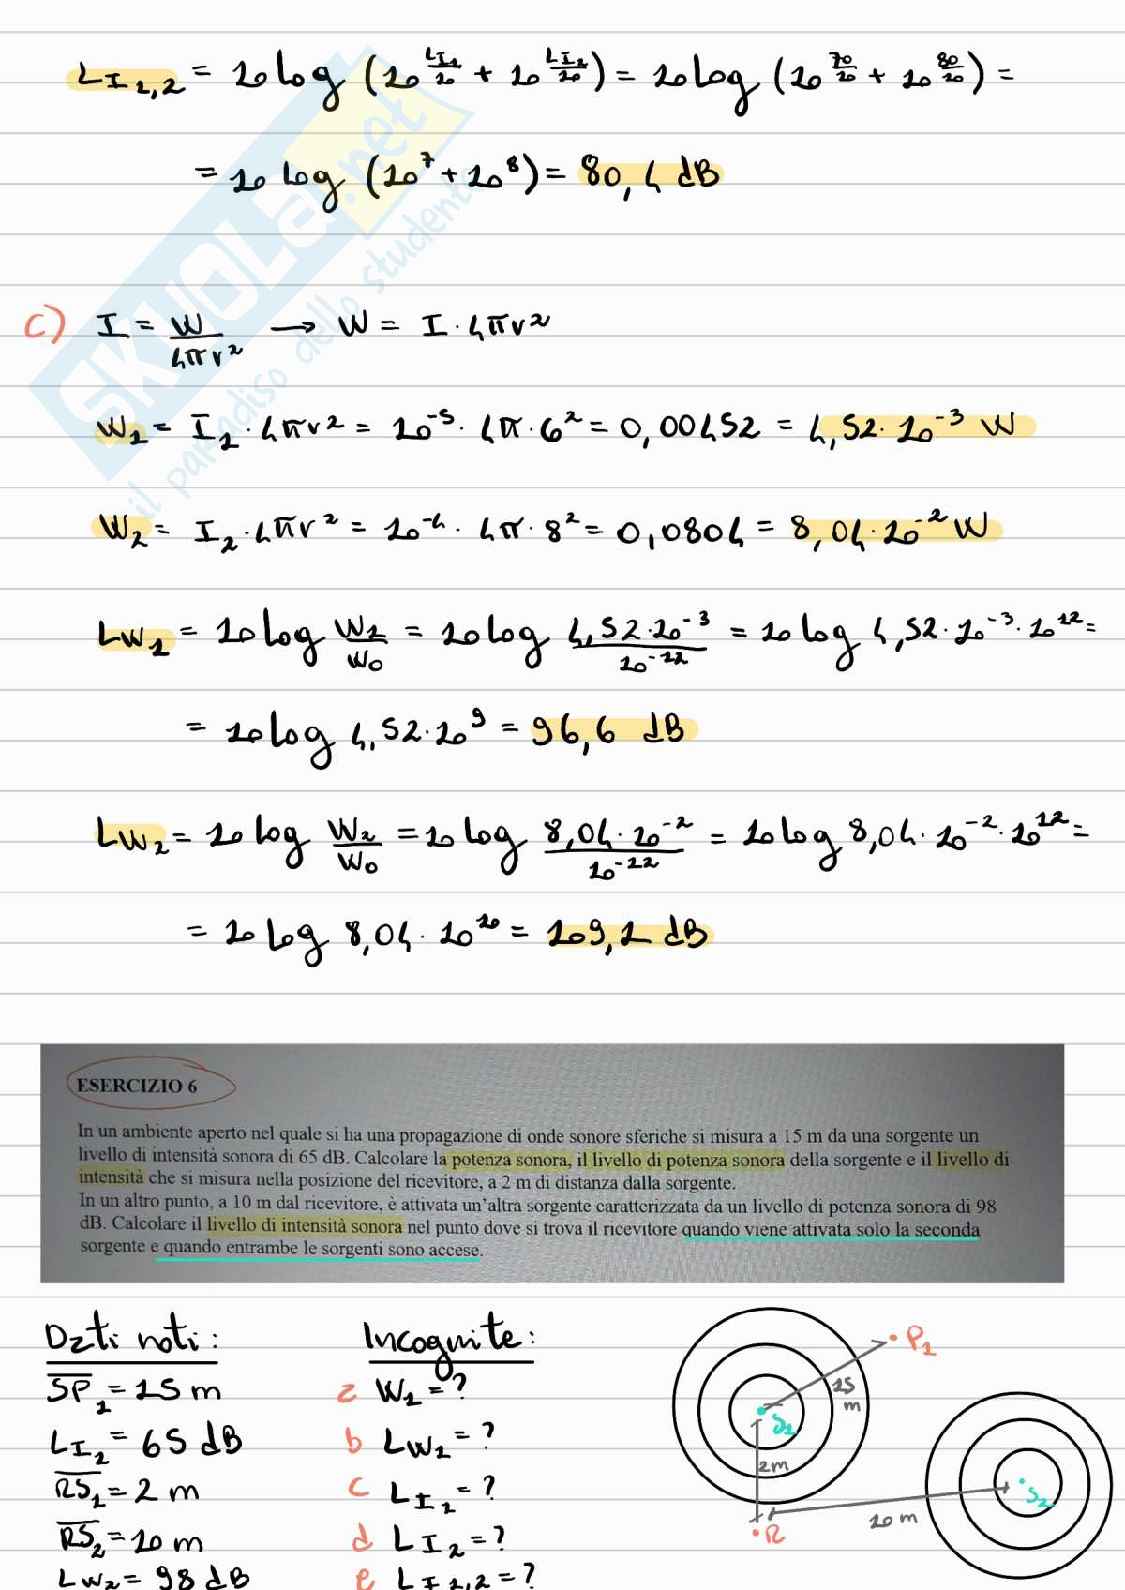 L_I1,2 = 10 log (10^(L_I1/10) + 10^(L_I2/10)) = 10 log (10^(70/10) + 10^(80/10)) =
= 10 log (10^7 + 10^8) = 80,4 dB
c) I = W/4πr² → W = I · 4πr²
W_1 = I_1 · 4πr² = 10^-5 · 4π · 6² = 0,00452 = 4,52 · 10^-3 W
W_2 = I_2 · 4πr² = 10^-4 · 4π · 8² = 0,0804 = 8,04 · 10^-2 W
LW_1 = 10 log W_1/W_0 = 10 log 4,52 · 10^-3/10^-12 = 10 log 4,52 · 10^-3 · 10^12 =
= 10 log 4,52 · 10^9 = 96,6 dB
LW_2 = 10 log W_2/W_0 = 10 log 8,04 · 10^-2/10^-12 = 10 log 8,04 · 10^-2 · 10^12 =
= 10 log 8,04 · 10^10 = 109,1 dB
SKUOLA.net
il paradiso dello studente
ESERCIZIO 6
In un ambiente aperto nel quale si ha una propagazione di onde sonore sferiche si misura a 15 m da una sorgente un
livello di intensità sonora di 65 dB. Calcolare la potenza sonora, il livello di potenza sonora della sorgente e il livello di
intensità che si misura nella posizione del ricevitore, a 2 m di distanza dalla sorgente.
In un altro punto, a 10 m dal ricevitore, è attivata un'altra sorgente caratterizzata da un livello di potenza sonora di 98
dB. Calcolare il livello di intensità sonora nel punto dove si trova il ricevitore quando viene attivata solo la seconda
sorgente e quando entrambe le sorgenti sono accese.
Dati noti:
SP_1 = 15 m
L_I1 = 65 dB
RS_1 = 2 m
RS_2 = 10 m
LW_2 = 98 dB
Incognite:
a W_1 = ?
b LW_1 = ?
c L_I1 = ?
d L_I2 = ?
e L_I1,2 = ?
P_1
15 m
S_1
2m
R
10 m
S_2